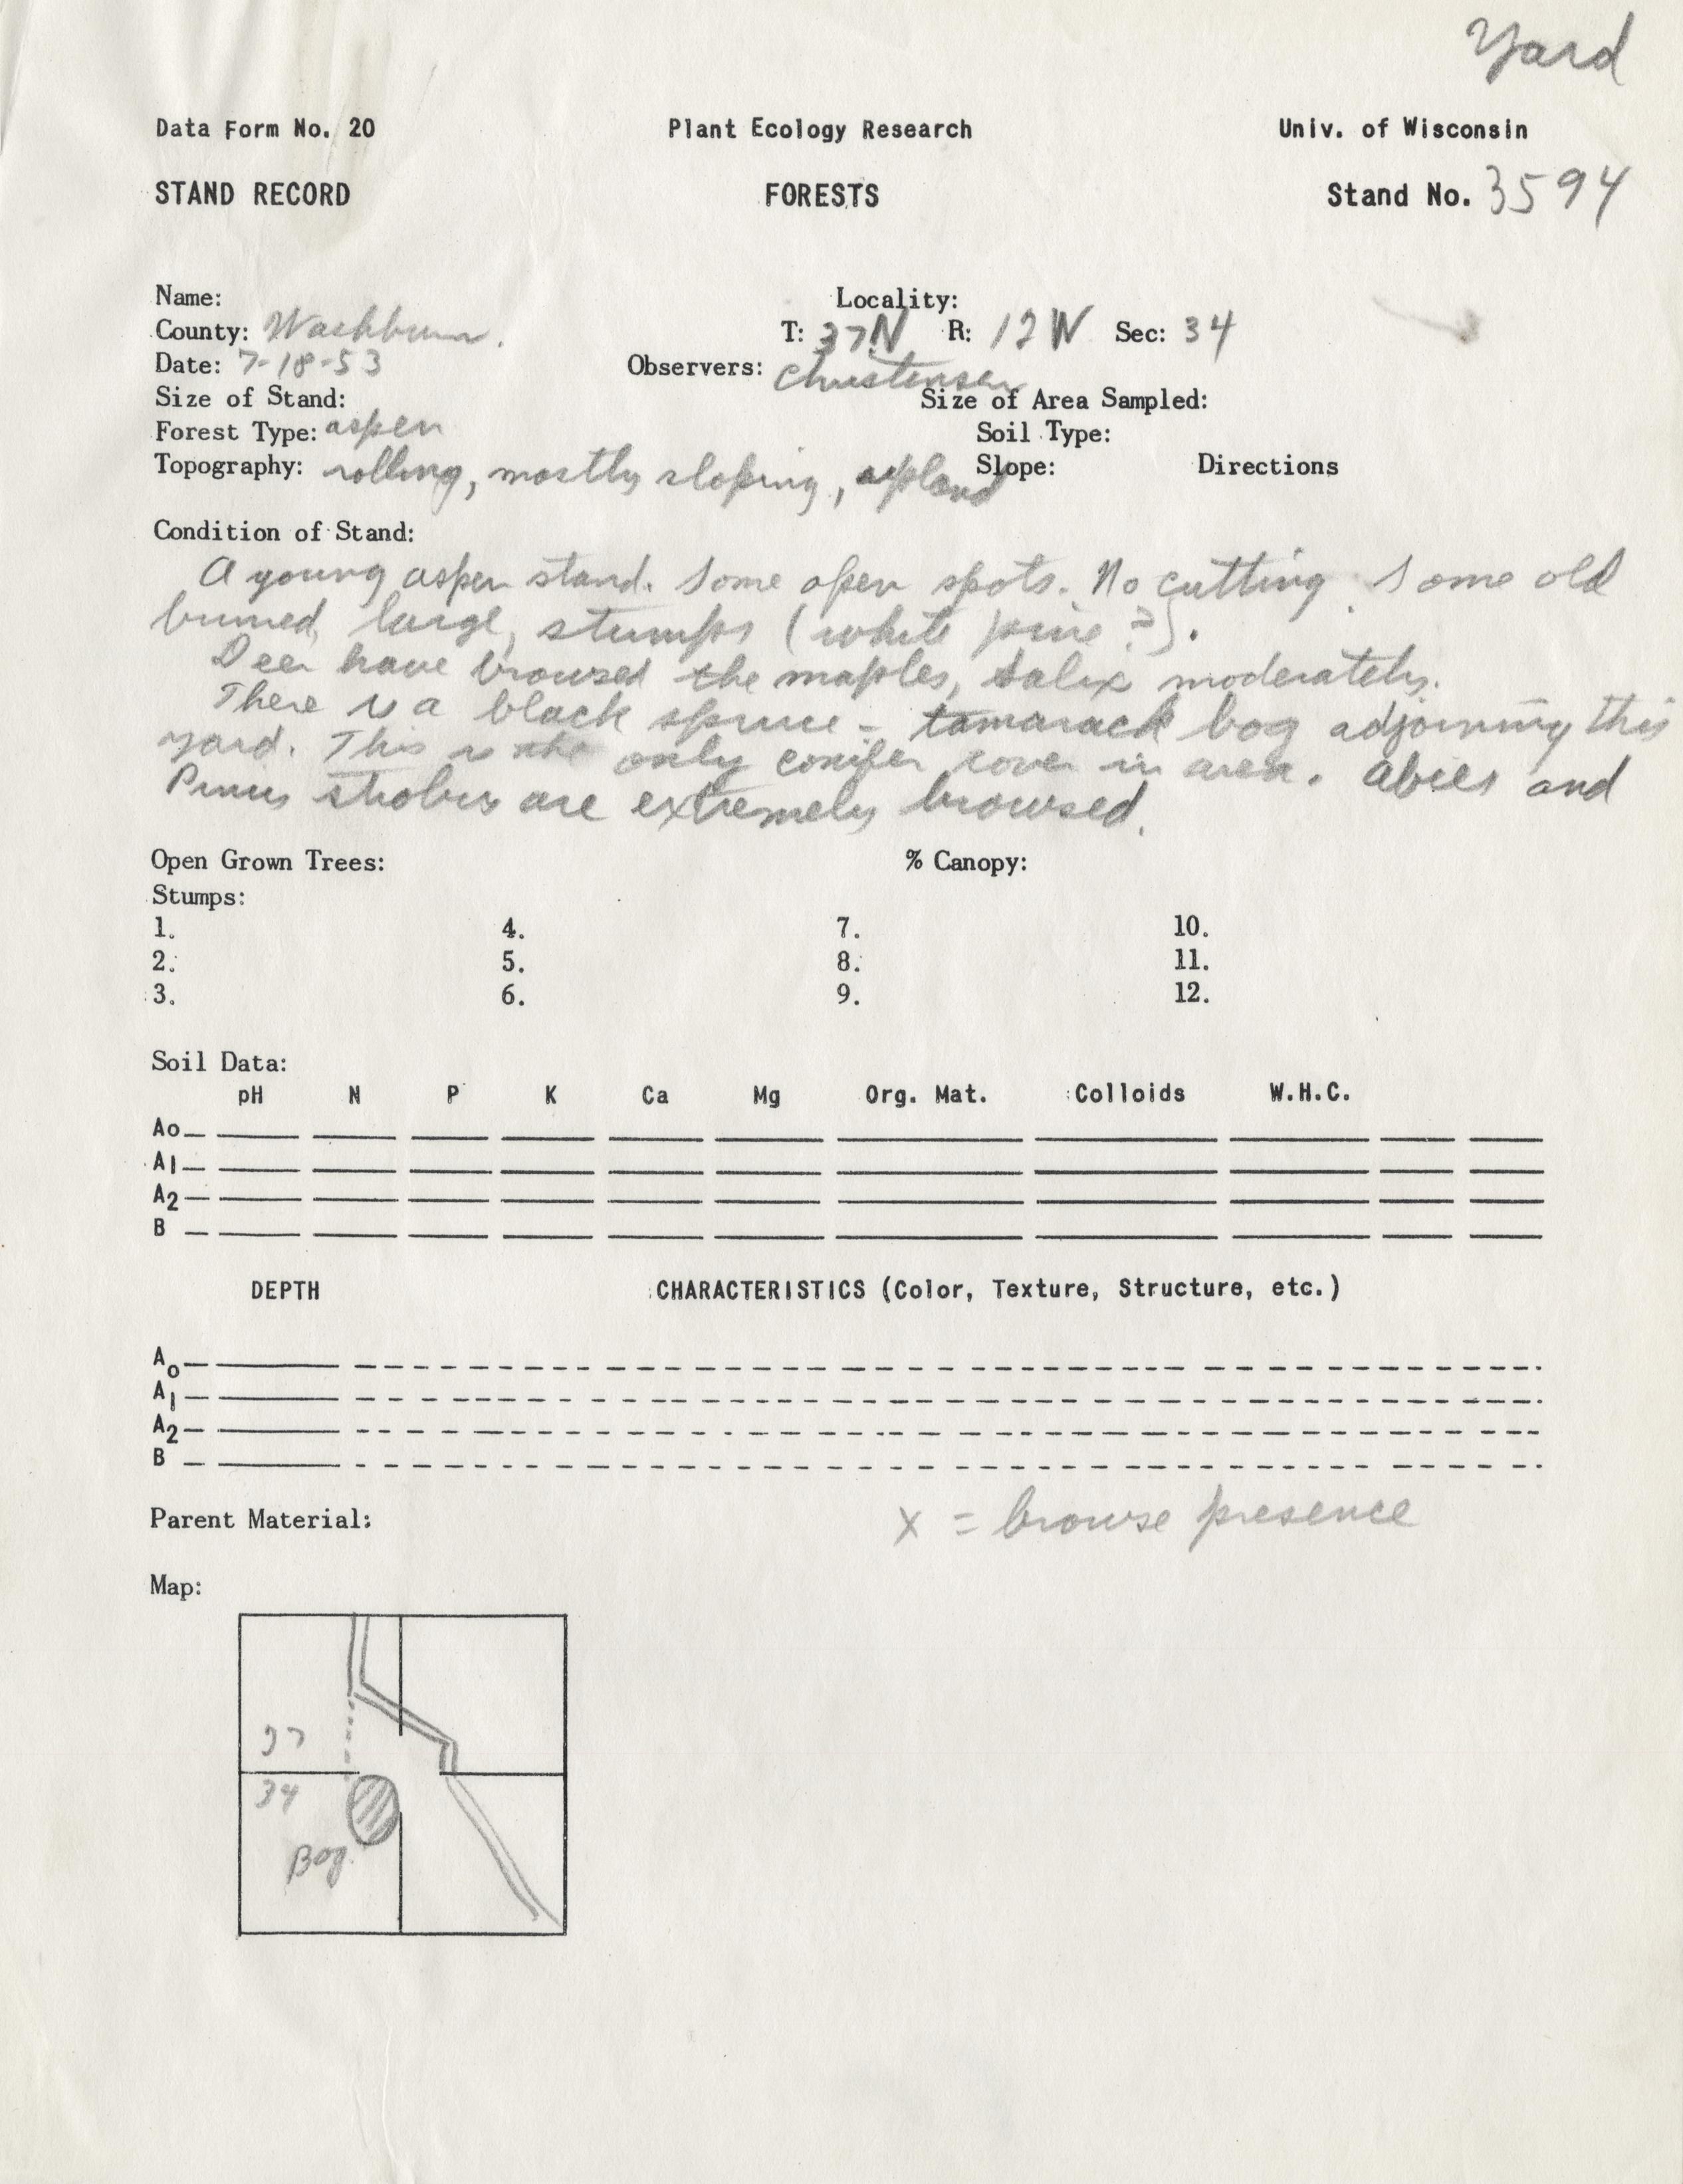 Yard
Data Form No. 20 Plant Ecology Research Univ. of Wisconsin
STAND RECORD FORESTS Stand No. 3594
Name: Locality:
County: Washburn. T: 37N R: 12W Sec: 34
Date: 7-18-53 Observers: Christensen
Size of Stand: Size of Area Sampled:
Forest Type: aspen Soil Type:
Topography: rolling, mostly sloping, upland Slope: Directions
Condition of Stand:
A young aspen stand. Some open spots. No cutting. Some old
burned, large, stumps (white pine?).
Deer have browsed the maples, Salix moderately.
There is a black spruce - tamarack bog adjoining this
yard. This is the only conifer cover in area. Abies and
Pinus strobus are extremely browsed.
Open Grown Trees: % Canopy:
Stumps:
1. 4. 7. 10.
2. 5. 8. 11.
3. 6. 9. 12.
Soil Data:
pH N P K Ca Mg Org. Mat. Colloids W.H.C.
Ao
A1
A2
B
DEPTH CHARACTERISTICS (Color, Texture, Structure, etc.)
Ao
A1
A2
B
Parent Material: x = browse presence
Map:
27
34
Bog